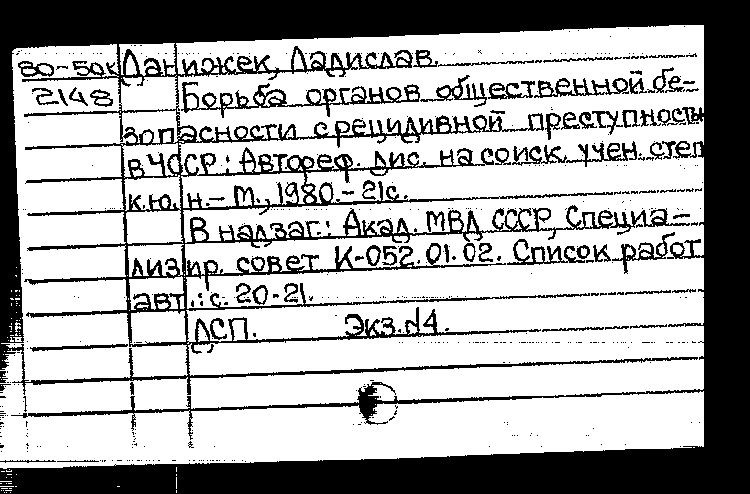 80-50к Данижек, Ладислав.
2148 Борьба органов общественной бе-
зопасности с рецидивной преступностью
в ЧССР: Автореф. дис. на соиск. учен. степ
к.ю.н.- М., 1980.- 21с.
В надзаг.: Акад. МВД СССР, Специа-
лизир. совет К-052.01.02. Список работ
авт.: с. 20-21.
ДСП. Экз.N4.